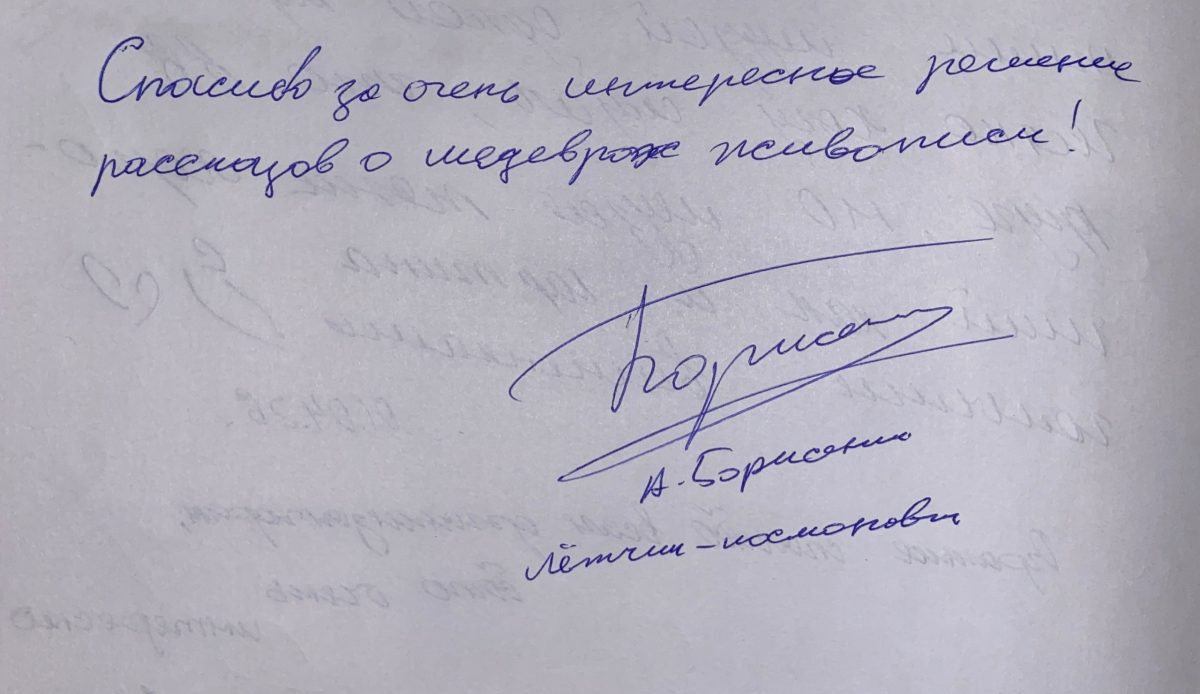 Спасибо за очень интересное решение
рассказов о шедеврах живописи!
Борисенко
А. Борисенко
Лётчик-космонавт